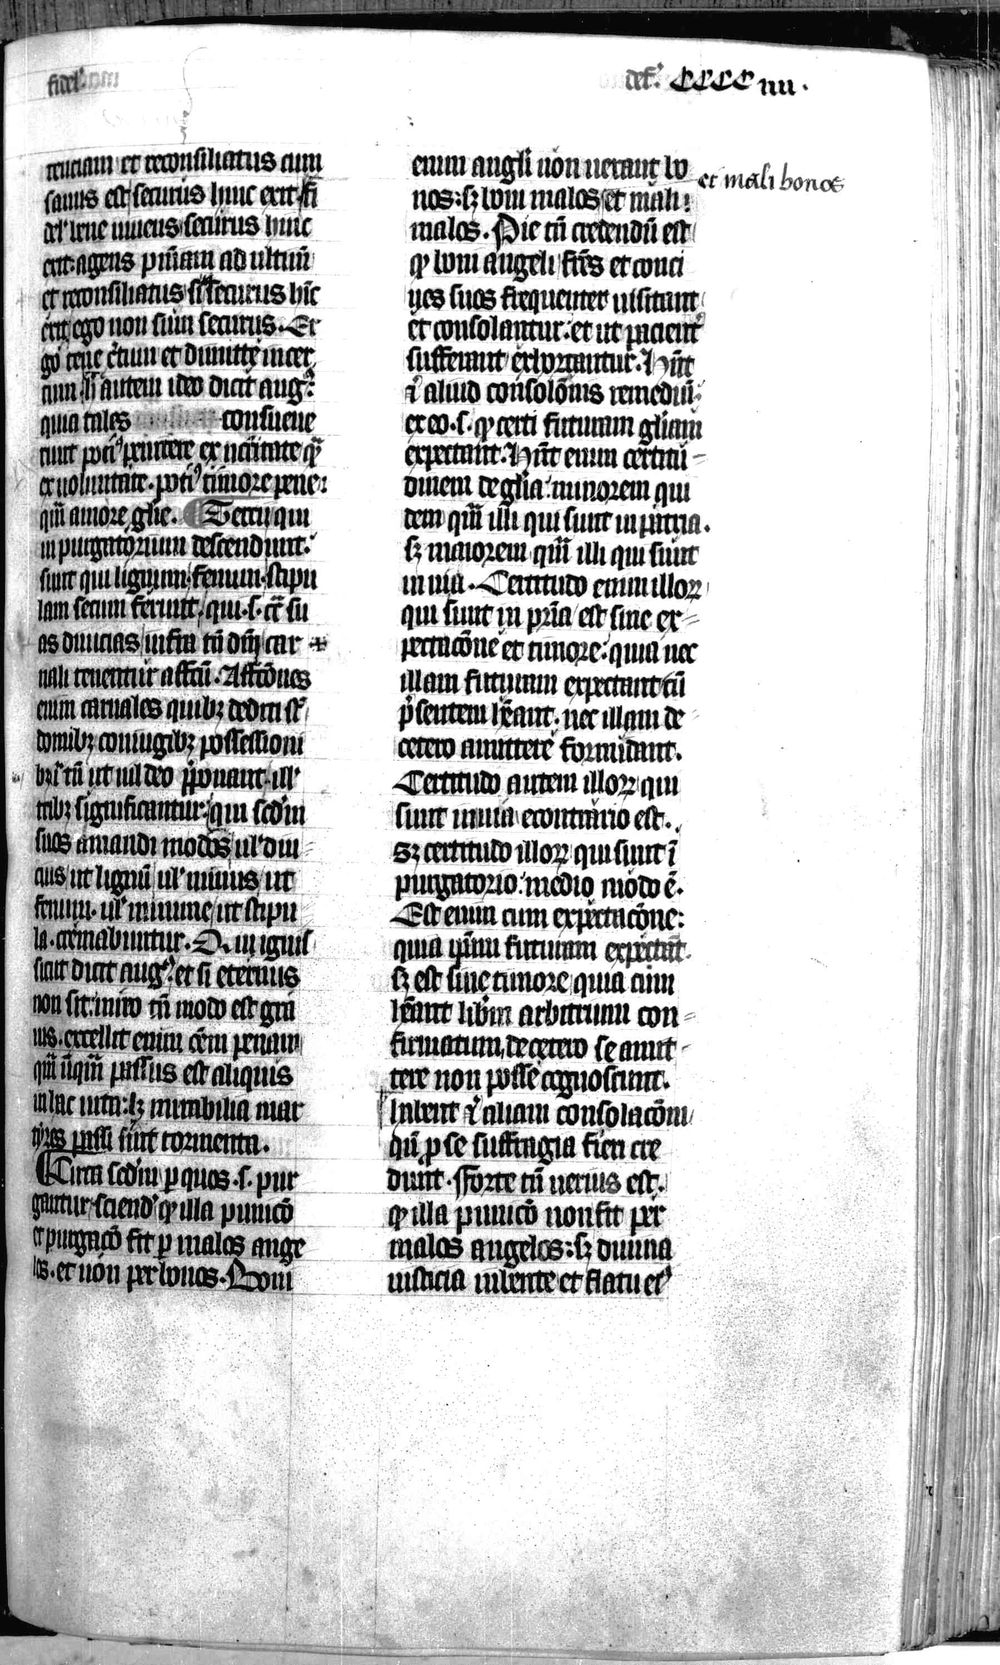 fidel᷒ def᷒. CCCC iiii.
tenciam et reconsiliatus cum
sanus est securus hinc exit. fi
del᷒ bene uiuens securus hinc
exit. agens pnīam ad ultimū
et reconsiliatus si securus hīc
exit ego non sum securus. Er
go tene c̄tum et dimitte incer
tum. h̄ autem ideo dicit aug᷒.
quia tales consueue
runt poci᷒ penitere ex ncītate qᷓ
ex uoluntate. poci᷒ timore pene.
qm̄ amore glīe. Tercii qui
in purgatorium descendunt.
sunt qui lignum. fenum. stipu
lam secum ferunt. qui. s. cr̄ su
as diuicias infra tn̄ dm̄ car
nali tenentur affcū. Affcōnes
enim carnales quibꝫ dediti st̄
domibꝫ coniugibꝫ possessioni
bꝫ. tn̄ ut nil deo p̄ponant. ill᷒
tribꝫ significantur. qui scdm̄
suos amandi modos ul᷒ diu
cius ut lignū ul᷒ minus ut
fenum. ul᷒ minime ut stipu
la. cremabuntur. Qui ignis
sicut dicit aug᷒. et si eternus
non sit. miro tn̄ modo est gra
uis. excellit enim oēm penam
qm̄ ūqm̄ passus est aliquis
in hac uita. lꝫ mirabilia mar
tyres passi sint tormenta.
Circa scdm̄ p quos. s. pur
gantur. sciend᷒ qꝫ illa punicō
et purgacō fit p malos ange
los. et non per bonos. Boni
enim angeli non uexant bo
et mali bonos
nos. sꝫ boni malos et mali.
malos. Pie tn̄ credendū est
qꝫ boni angeli frēs et conci
ues suos frequenter uisitant
et consolantur. et ut pacient᷒
sufferant exhortantur. Hn̄t
⁊ aliud consolōnis remediū.
ex eo. s. qꝫ certi futuram glīam
expectant. Hn̄t enim certitu
dinem de glīa. minorem qui
dem qm̄ illi qui sunt in patria.
sꝫ maiorem qm̄ illi qui sunt
in uia. Certitudo enim illoꝝ
qui sunt in pr̄ia est sine ex
pectacōne et timore. quia nec
illam futuram expectant cū
p̄sentem hēant. nec illam de
cetero amittere formidant.
Certitudo autem illoꝝ qui
sunt in uia econtrario est.
Sꝫ certitudo illoꝝ qui sunt ī
purgatorio. medio modo ē.
Est enim cum expectacōne.
quia ipam futuram expectāt.
sꝫ est sine timore quia cum
hēant libm̄ arbitrium con
firmatum, de cetero se amit
tere non posse cognoscunt.
Habent ⁊ aliam consolacōm
qn̄ p se suffragia fieri cre
dunt. Forte tn̄ uerius est.
qꝫ illa punicō non fit per
malos angelos. sꝫ diuina
iusticia iubente et flatu ei᷒